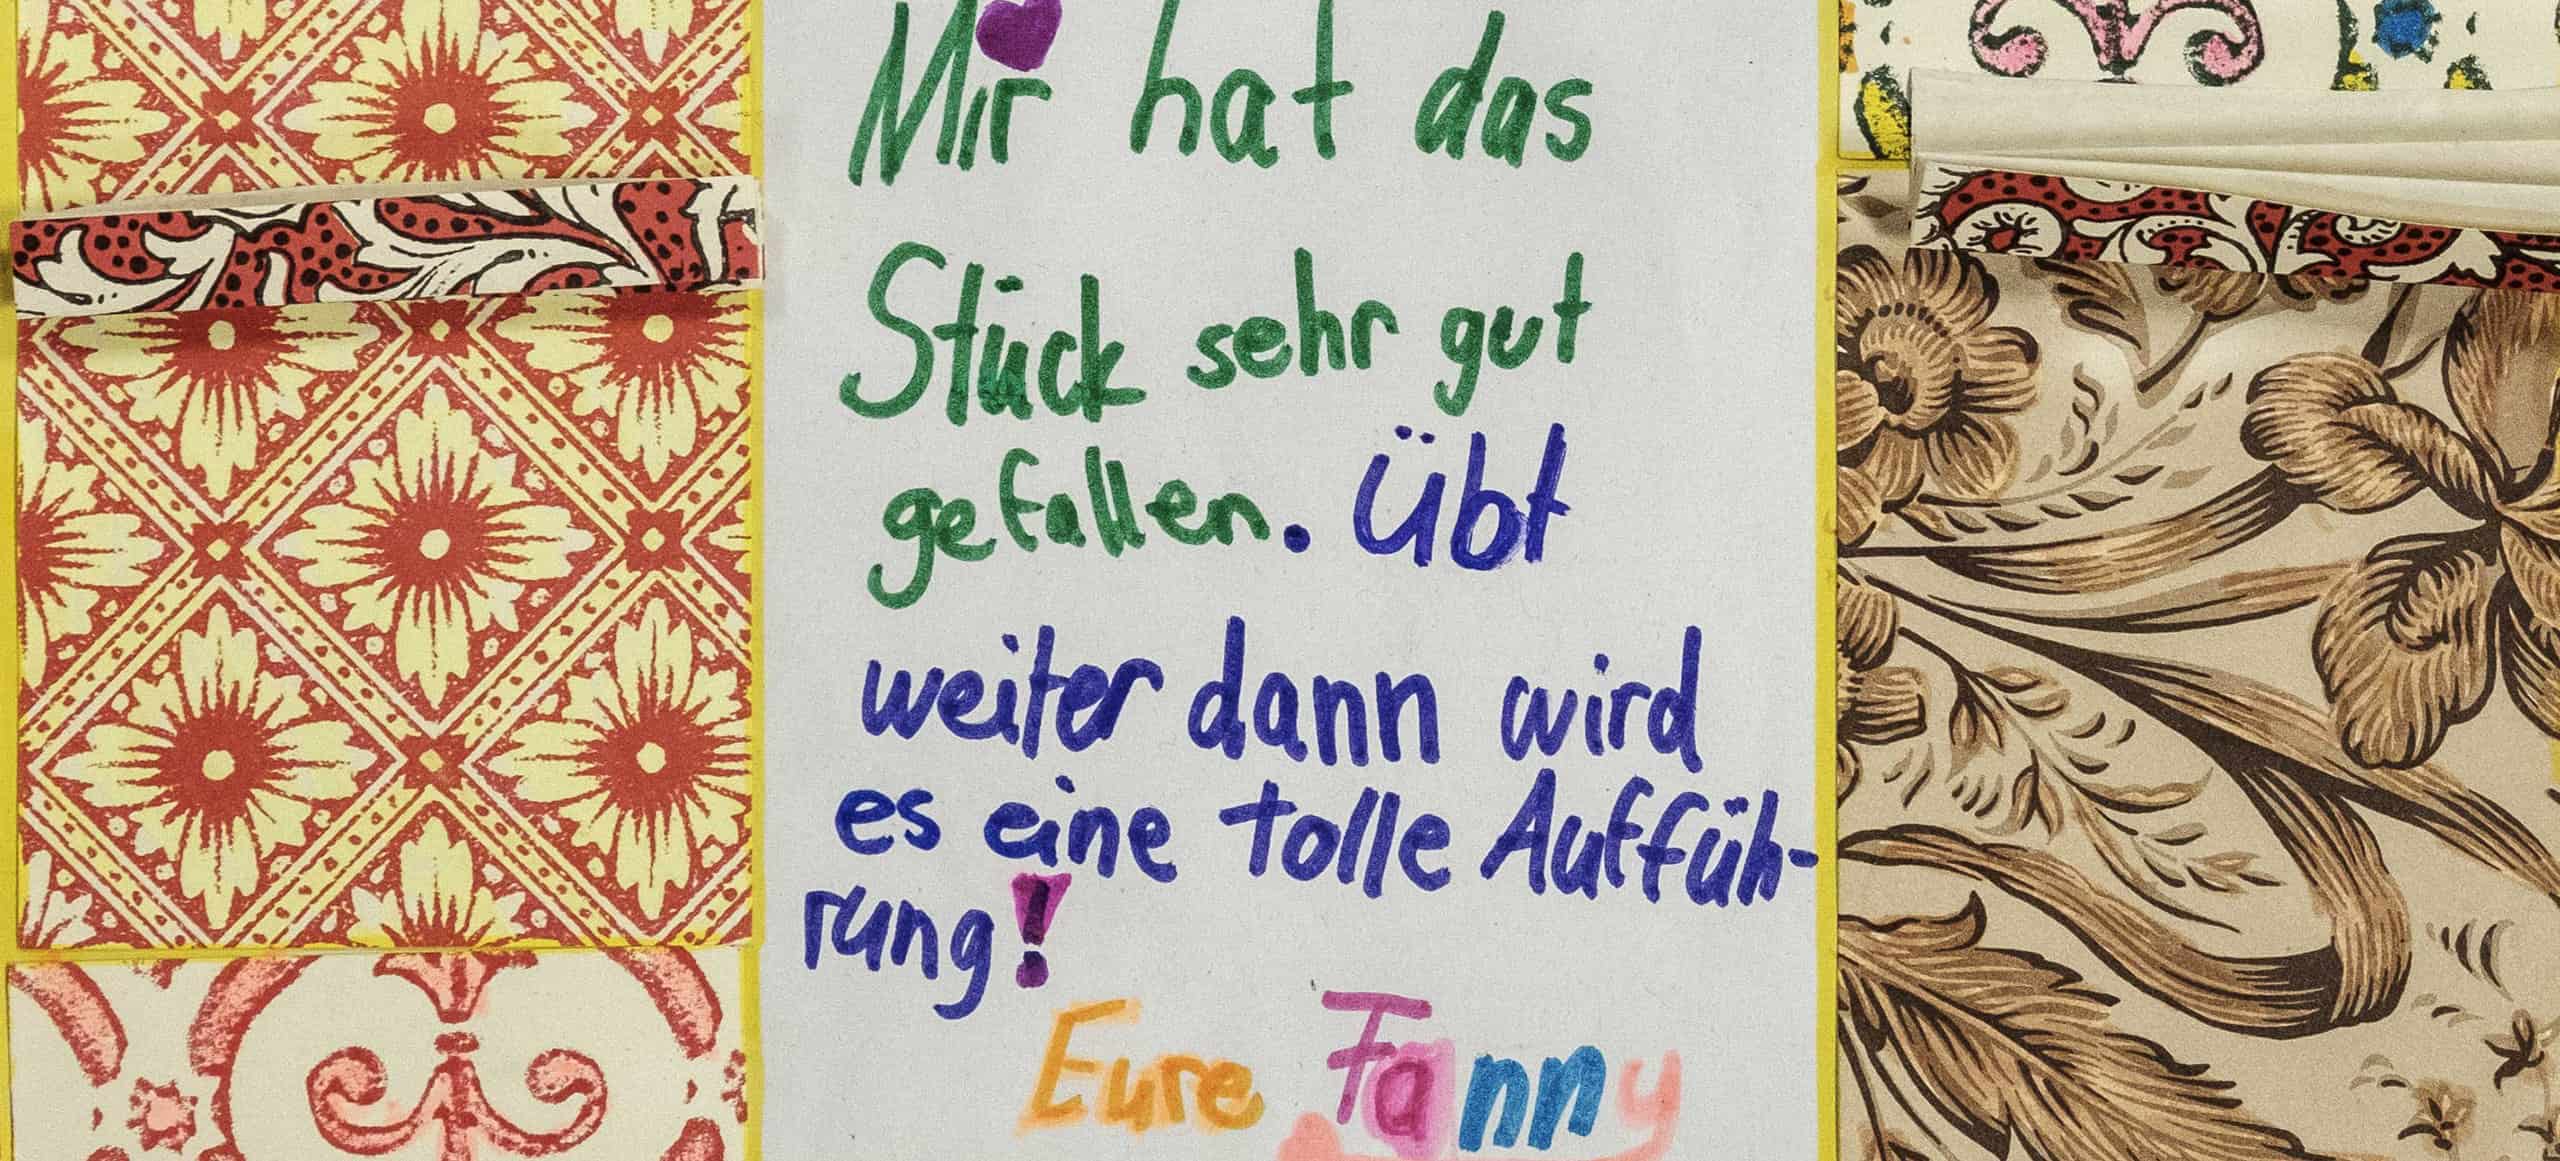 Mir hat das
Stück sehr gut
gefallen. Übt
weiter dann wird
es eine tolle Auffüh-
rung!
Eure Fanny